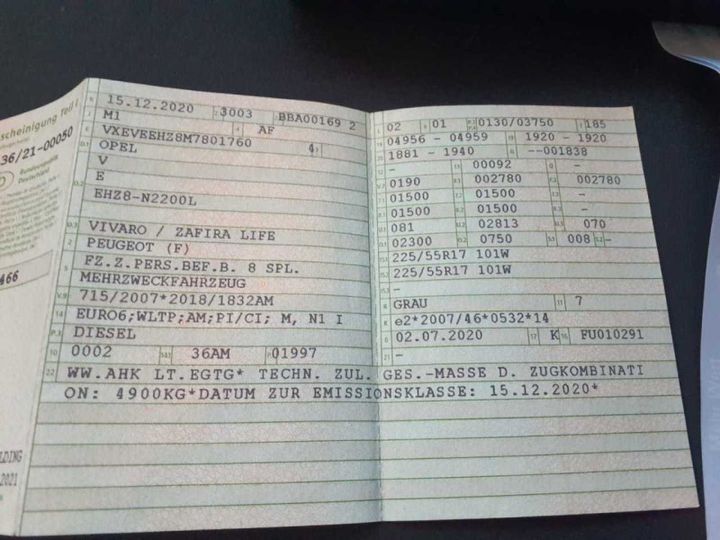 scheinigung Teil I
36/21-00050
Bundesrepublik
Deutschland
466
LDING
2021
15.12.2020 3003 BBA00169 2
M1 AF
VXEVEEHZ8M7801760 4
OPEL
V
E
EHZ8-N2200L
VIVARO / ZAFIRA LIFE
PEUGEOT (F)
FZ.Z.PERS.BEF.B. 8 SPL.
MEHRZWECKFAHRZEUG
715/2007*2018/1832AM
EURO6;WLTP;AM;PI/CI; M, N1 I
DIESEL
0002 36AM 01997
02 01 0130/03750 185
04956 - 04959 1920 - 1920
1881 - 1940 --001838
- 00092 -
0190 002780 002780
01500 01500 -
01500 01500 -
081 02813 070
02300 0750 008 -
225/55R17 101W
225/55R17 101W
-
GRAU 7
e2*2007/46*0532*14
02.07.2020 K FU010291
-
22 WW.AHK LT.EGTG* TECHN. ZUL. GES.-MASSE D. ZUGKOMBINATI
ON: 4900KG*DATUM ZUR EMISSIONSKLASSE: 15.12.2020*